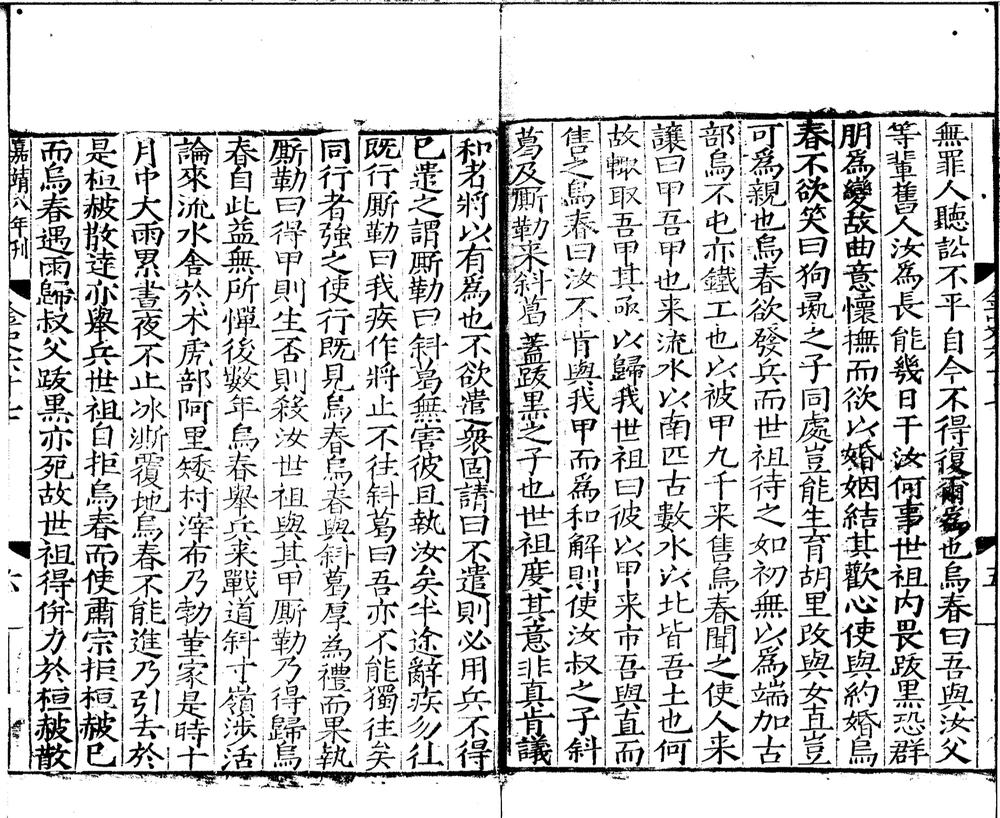 無罪人聽訟不平自今不得復爾爲也烏春曰吾與汝父
等輩舊人汝爲長能幾日干汝何事世祖内畏跋黑恐群
朋爲變故曲意懷撫而欲以婚姻結其歡心使與約婚烏
春不欲笑曰狗彘之子同處豈能生育胡里改與女直豈
可爲親也烏春欲發兵而世祖待之如初無以爲端加古
部烏不屯亦鐵工也以被甲九千来售烏春聞之使人来
讓曰甲吾甲也来流水以南匹古數水以北皆吾土也何
故輙取吾甲其亟以歸我世祖曰彼以甲来市吾與直而
售之烏春曰汝不肯與我甲而爲和解則使汝叔之子斜
葛及厮勒来斜葛蓋跋黑之子也世祖度其意非真肯議
和者將以有爲也不欲遣衆固請曰不遣則必用兵不得
已遣之謂厮勒曰斜葛無害彼且執汝矣半途辭疾勿往
既行厮勒曰我疾作將止不往斜葛曰吾亦不能獨往矣
同行者強之使行既見烏春烏春與斜葛厚爲禮而果執
厮勒曰得甲則生否則殺汝世祖與其甲厮勒乃得歸烏
春自此益無所憚後數年烏春舉兵来戰道斜寸嶺涉活
論來流水舍於朮虎部阿里矮村滓布乃勃菫家是時十
月中大雨累晝夜不止冰澌覆地烏春不能進乃引去於
是桓赧散達亦舉兵世祖自拒烏春而使肅宗拒桓赧已
而烏春遇雨歸叔父跋黑亦死故世祖得併力於桓赧散
嘉靖八年刊
六